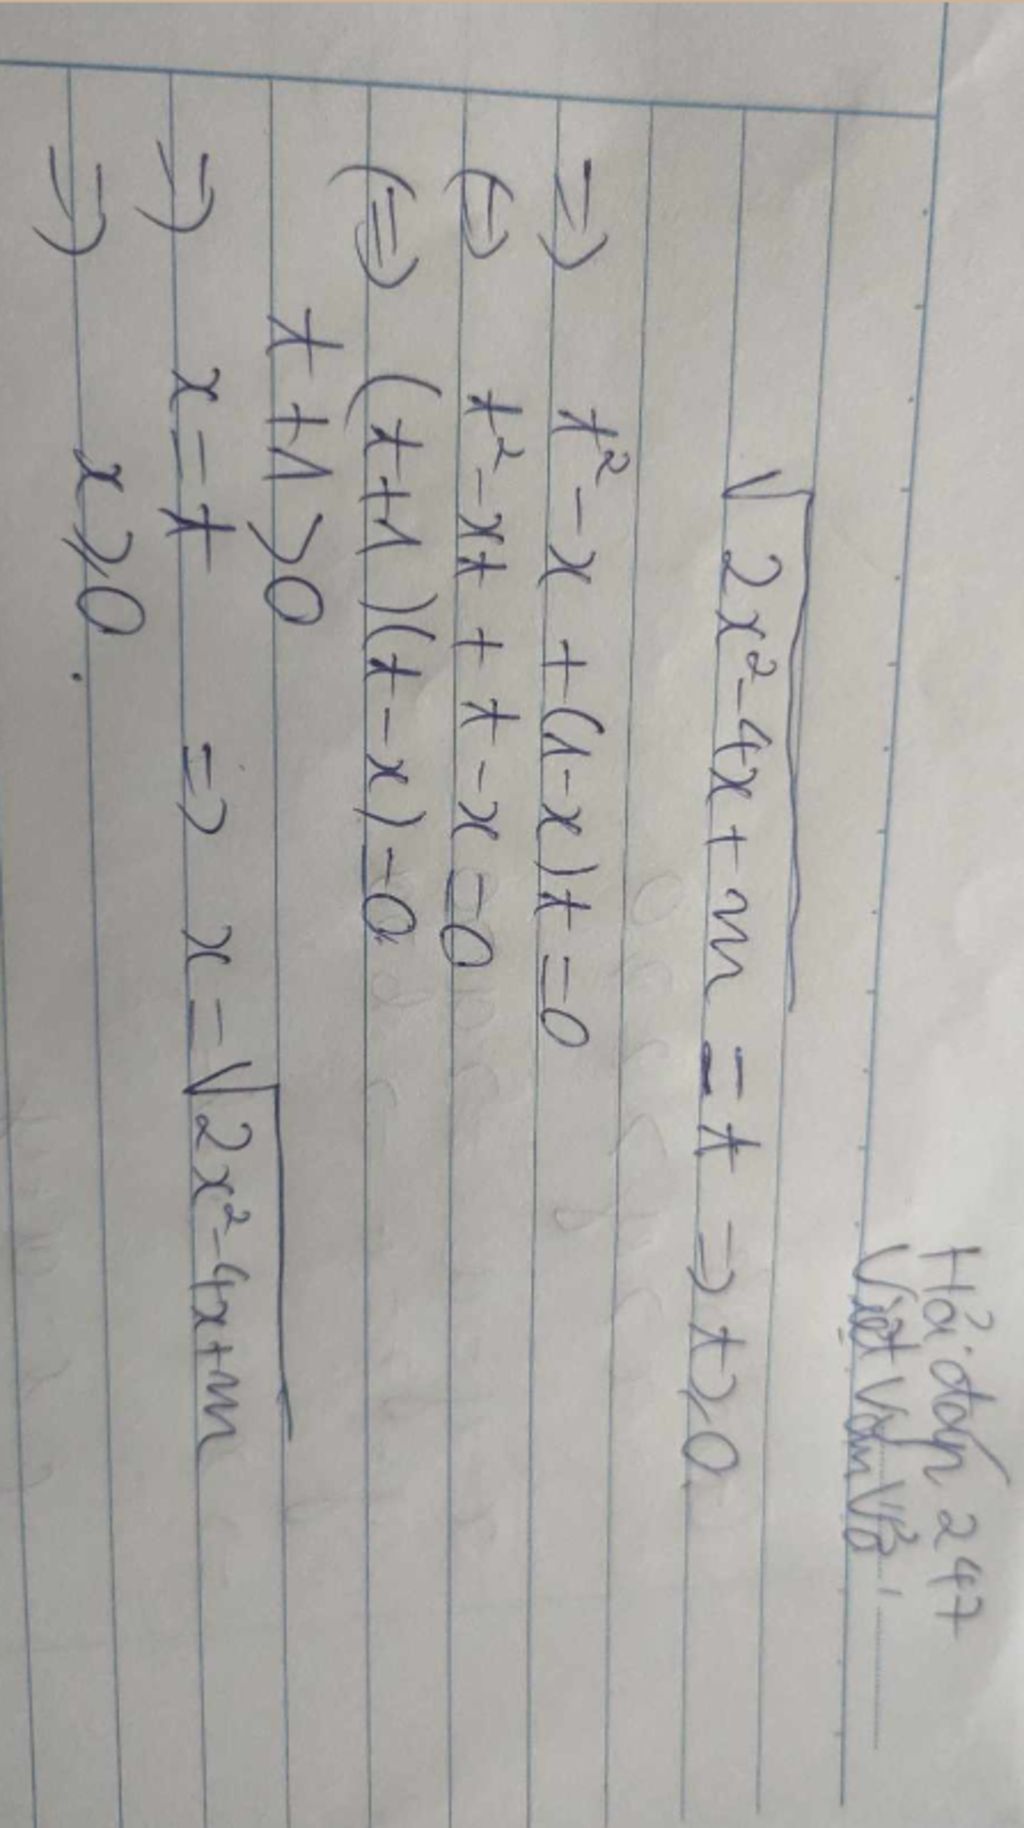 Hỏi đáp 247
Viết Văn Vở
√2x²-4x+m = t => t⩾0
=> t²-x+(1-x)t=0
(=) t²-xt+t-x=0
(=) (t+1)(t-x)=0
t+1>0
=) x=t => x=√2x²-4x+m
=) x⩾0.